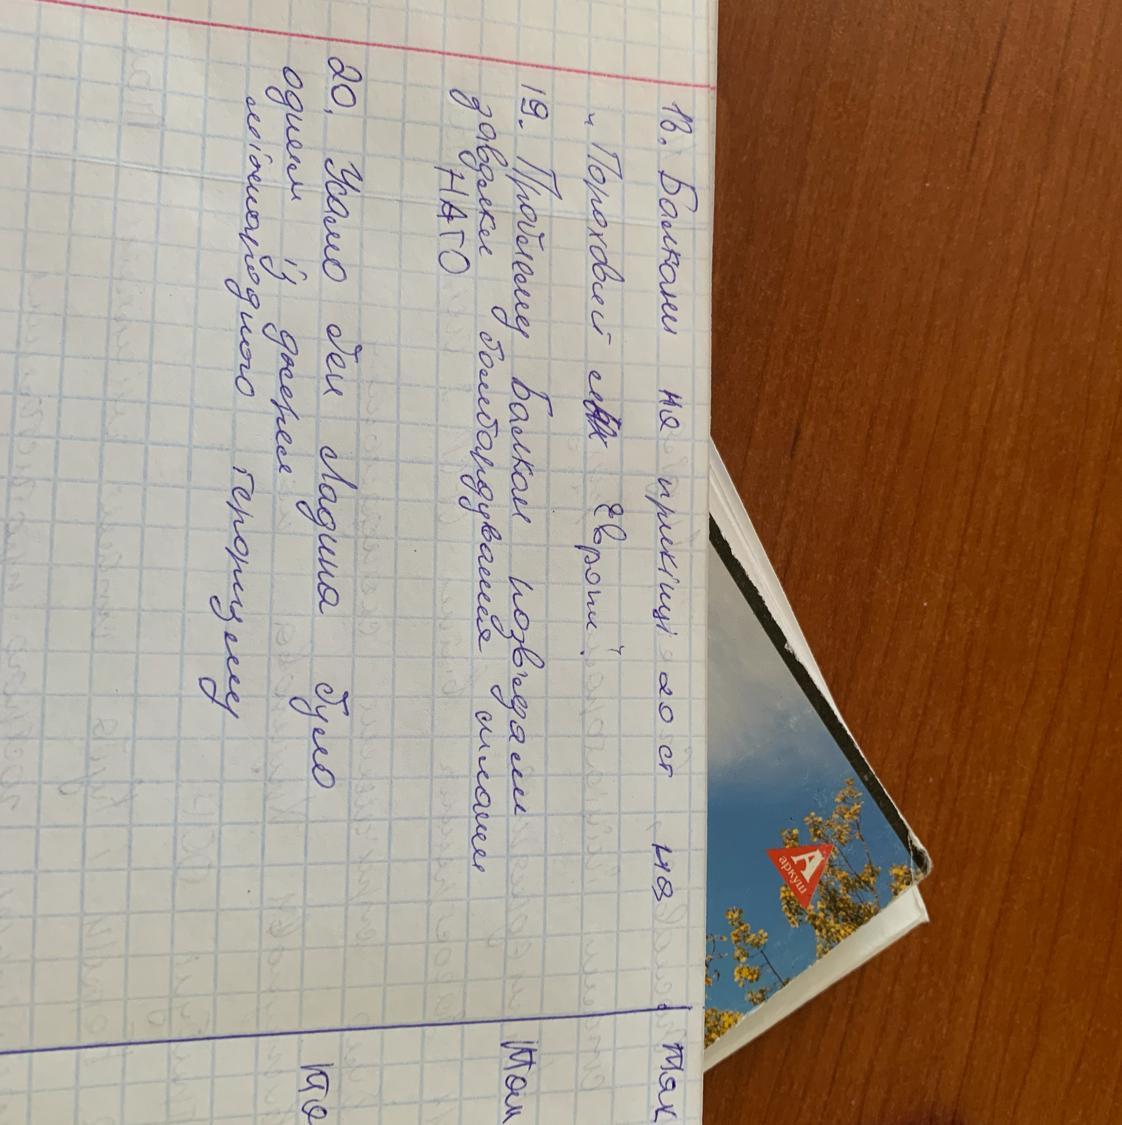 18. Балкани на прикінці 20 ст на
"Пороховий Європи".
19. Проблему Балкан розв'язали
завдяки бомбардування силами
НАТО
20. Усамо бен Ладина було
одним із джерел
міжнародного тероризму
так
так
та
А
аркуш